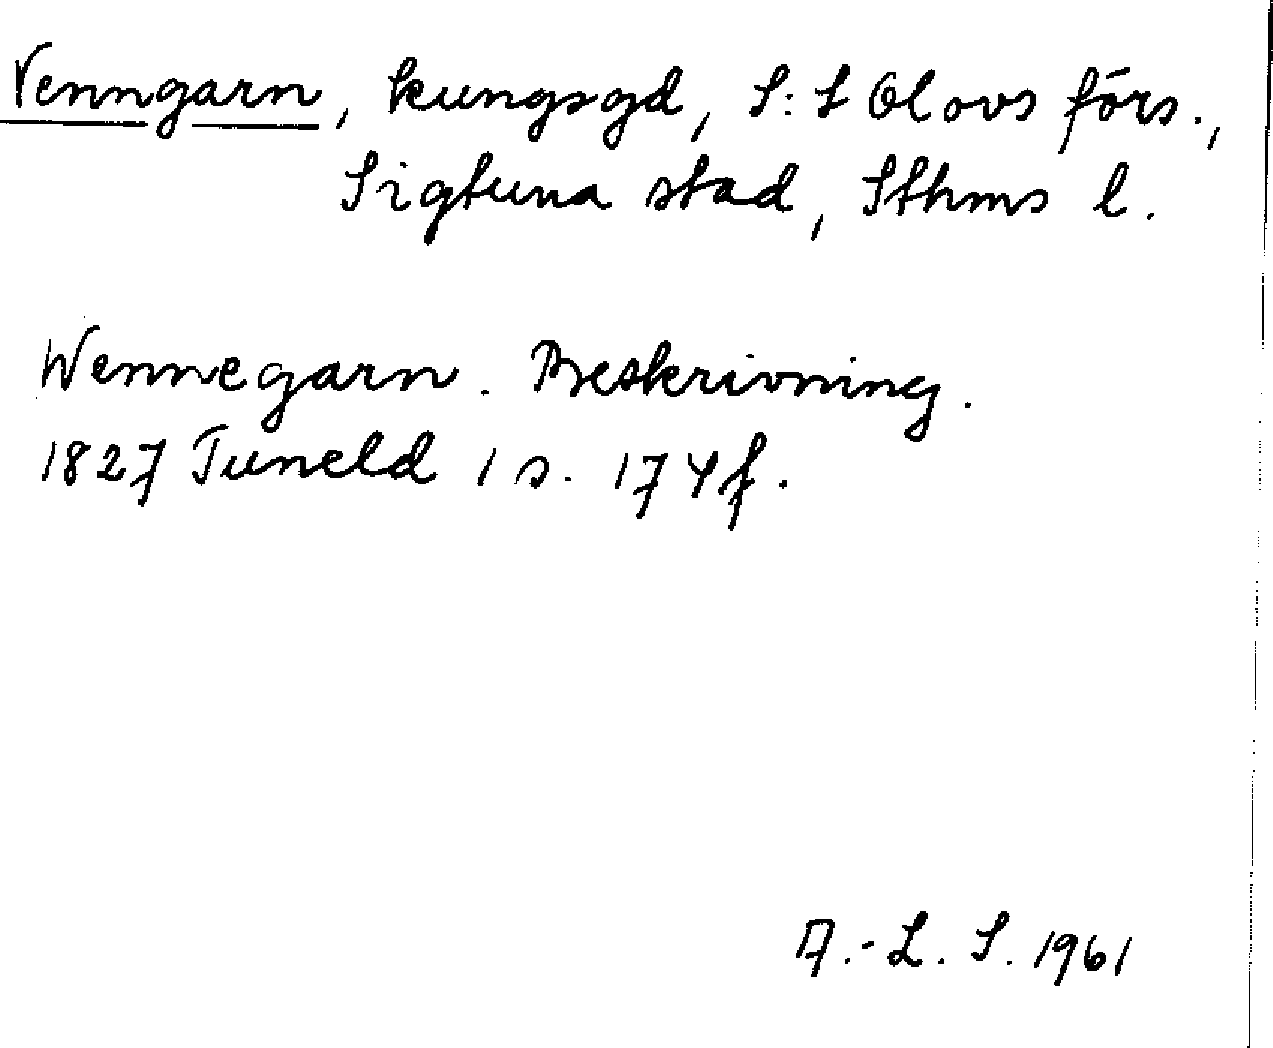 Venngarn, kungsgd, S:t Olovs förs.,
Sigtuna stad, Sthms l.
Wennegarn. Beskrivning.
1827 Tuneld 1 s. 174 f.
A.-L. S. 1961